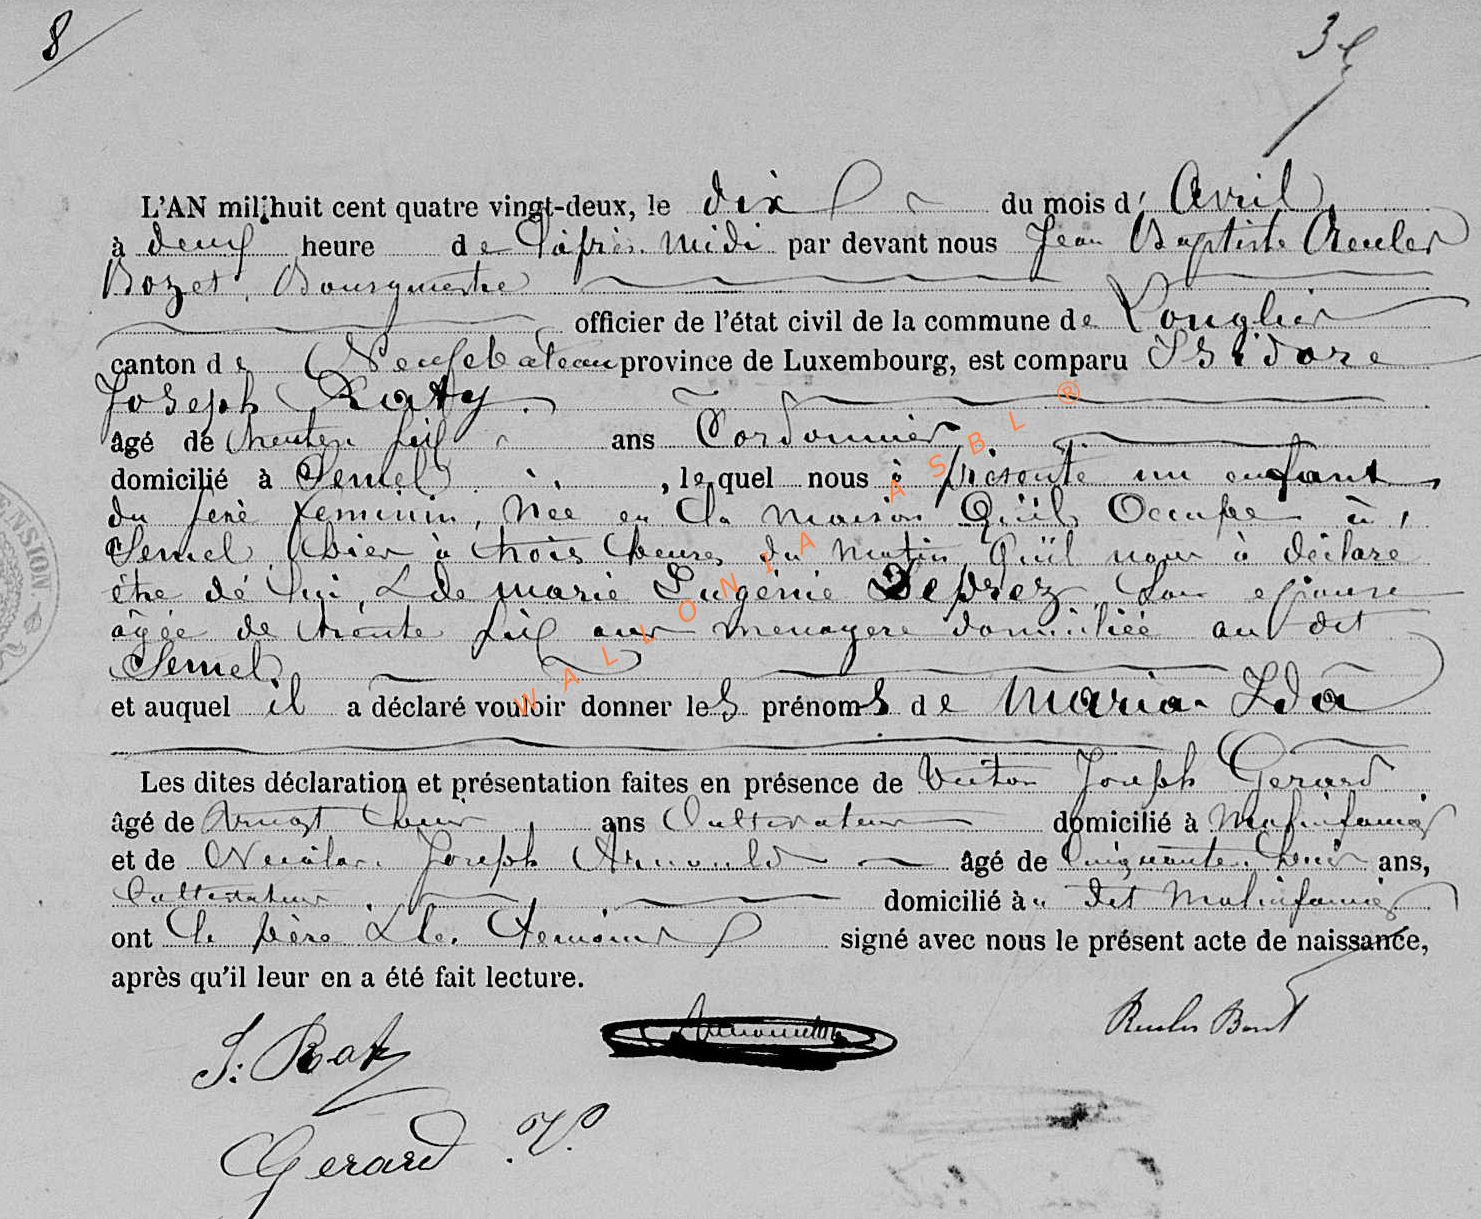 8
L'AN mil huit cent quatre vingt-deux, le dix du mois d' Avril
à deux heure de l'après midi par devant nous Jean Baptiste Reuler
Bozet, Bourgmestre
officier de l'état civil de la commune de Longlier
canton de Neufchateau province de Luxembourg, est comparu Isidore
Joseph Raty
âgé de trente six ans Cordonnier
domicilié à Semel, lequel nous à présenté un enfant
du sexe feminin, née en la maison qu'il occupe à
Semel hier à trois heures du matin qu'il nous à déclaré
être de lui & de marie Eugénie Deprez son epouse
âgée de trente six ans menagere domiciliée au dit
Semel
et auquel il a déclaré vouloir donner les prénoms de Maria Ida
Les dites déclaration et présentation faites en présence de Joseph Gerard
âgé de vingt ans Cultivateur domicilié à Molinfaing
et de Nicolas Joseph Arnould âgé de Cinquante ans,
Cultivateur domicilié à dit Molinfaing
ont le père & les temoins signé avec nous le présent acte de naissance,
après qu'il leur en a été fait lecture.
J: Raty
Gerard .V.
WALLONIA ASBL ®
ENSION.